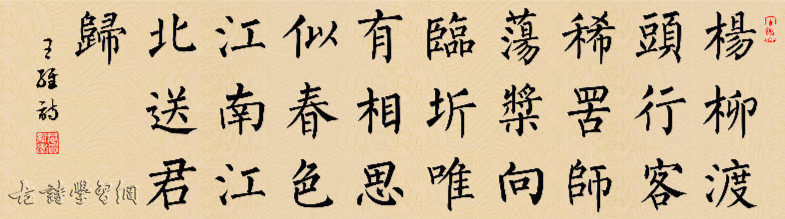 楊柳渡
頭行客
稀罟師
蕩槳向
臨圻唯
有相思
似春色
江南江
北送君
歸
王維詩